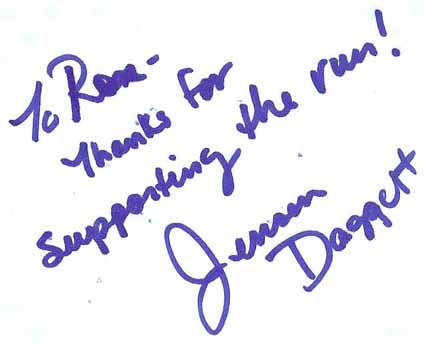 To Ron-
Thanks for
supporting the run!
Jensen
Daggett